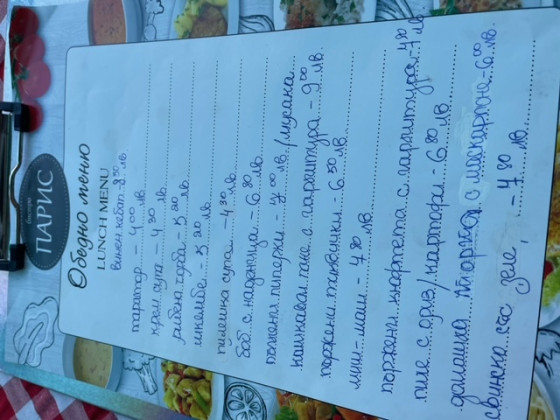 ПАРИС
Обедно меню
LUNCH MENU
Винен кебап - 8.50 лв.
таратор - 4.00 лв
крем супа - 4.50 лв.
рибена чорба - 5.20 лв
шкембе - 5.20 лв.
пилешка супа - 4.50 лв
боб с наденица - 6.80 лв.
пълнени пиперки - 7.00 лв. / мусака
кашкавал пане с гарнитура - 9.00 лв.
пържени тиквички - 6.50 лв.
миш-маш - 7.90 лв.
пържени кюфтета с гарнитура - 7 лв
пиле с ориз / картофи - 6.80 лв
домашна с макарони - 6.00 лв.
свинско със зеле, - 7.80 лв.